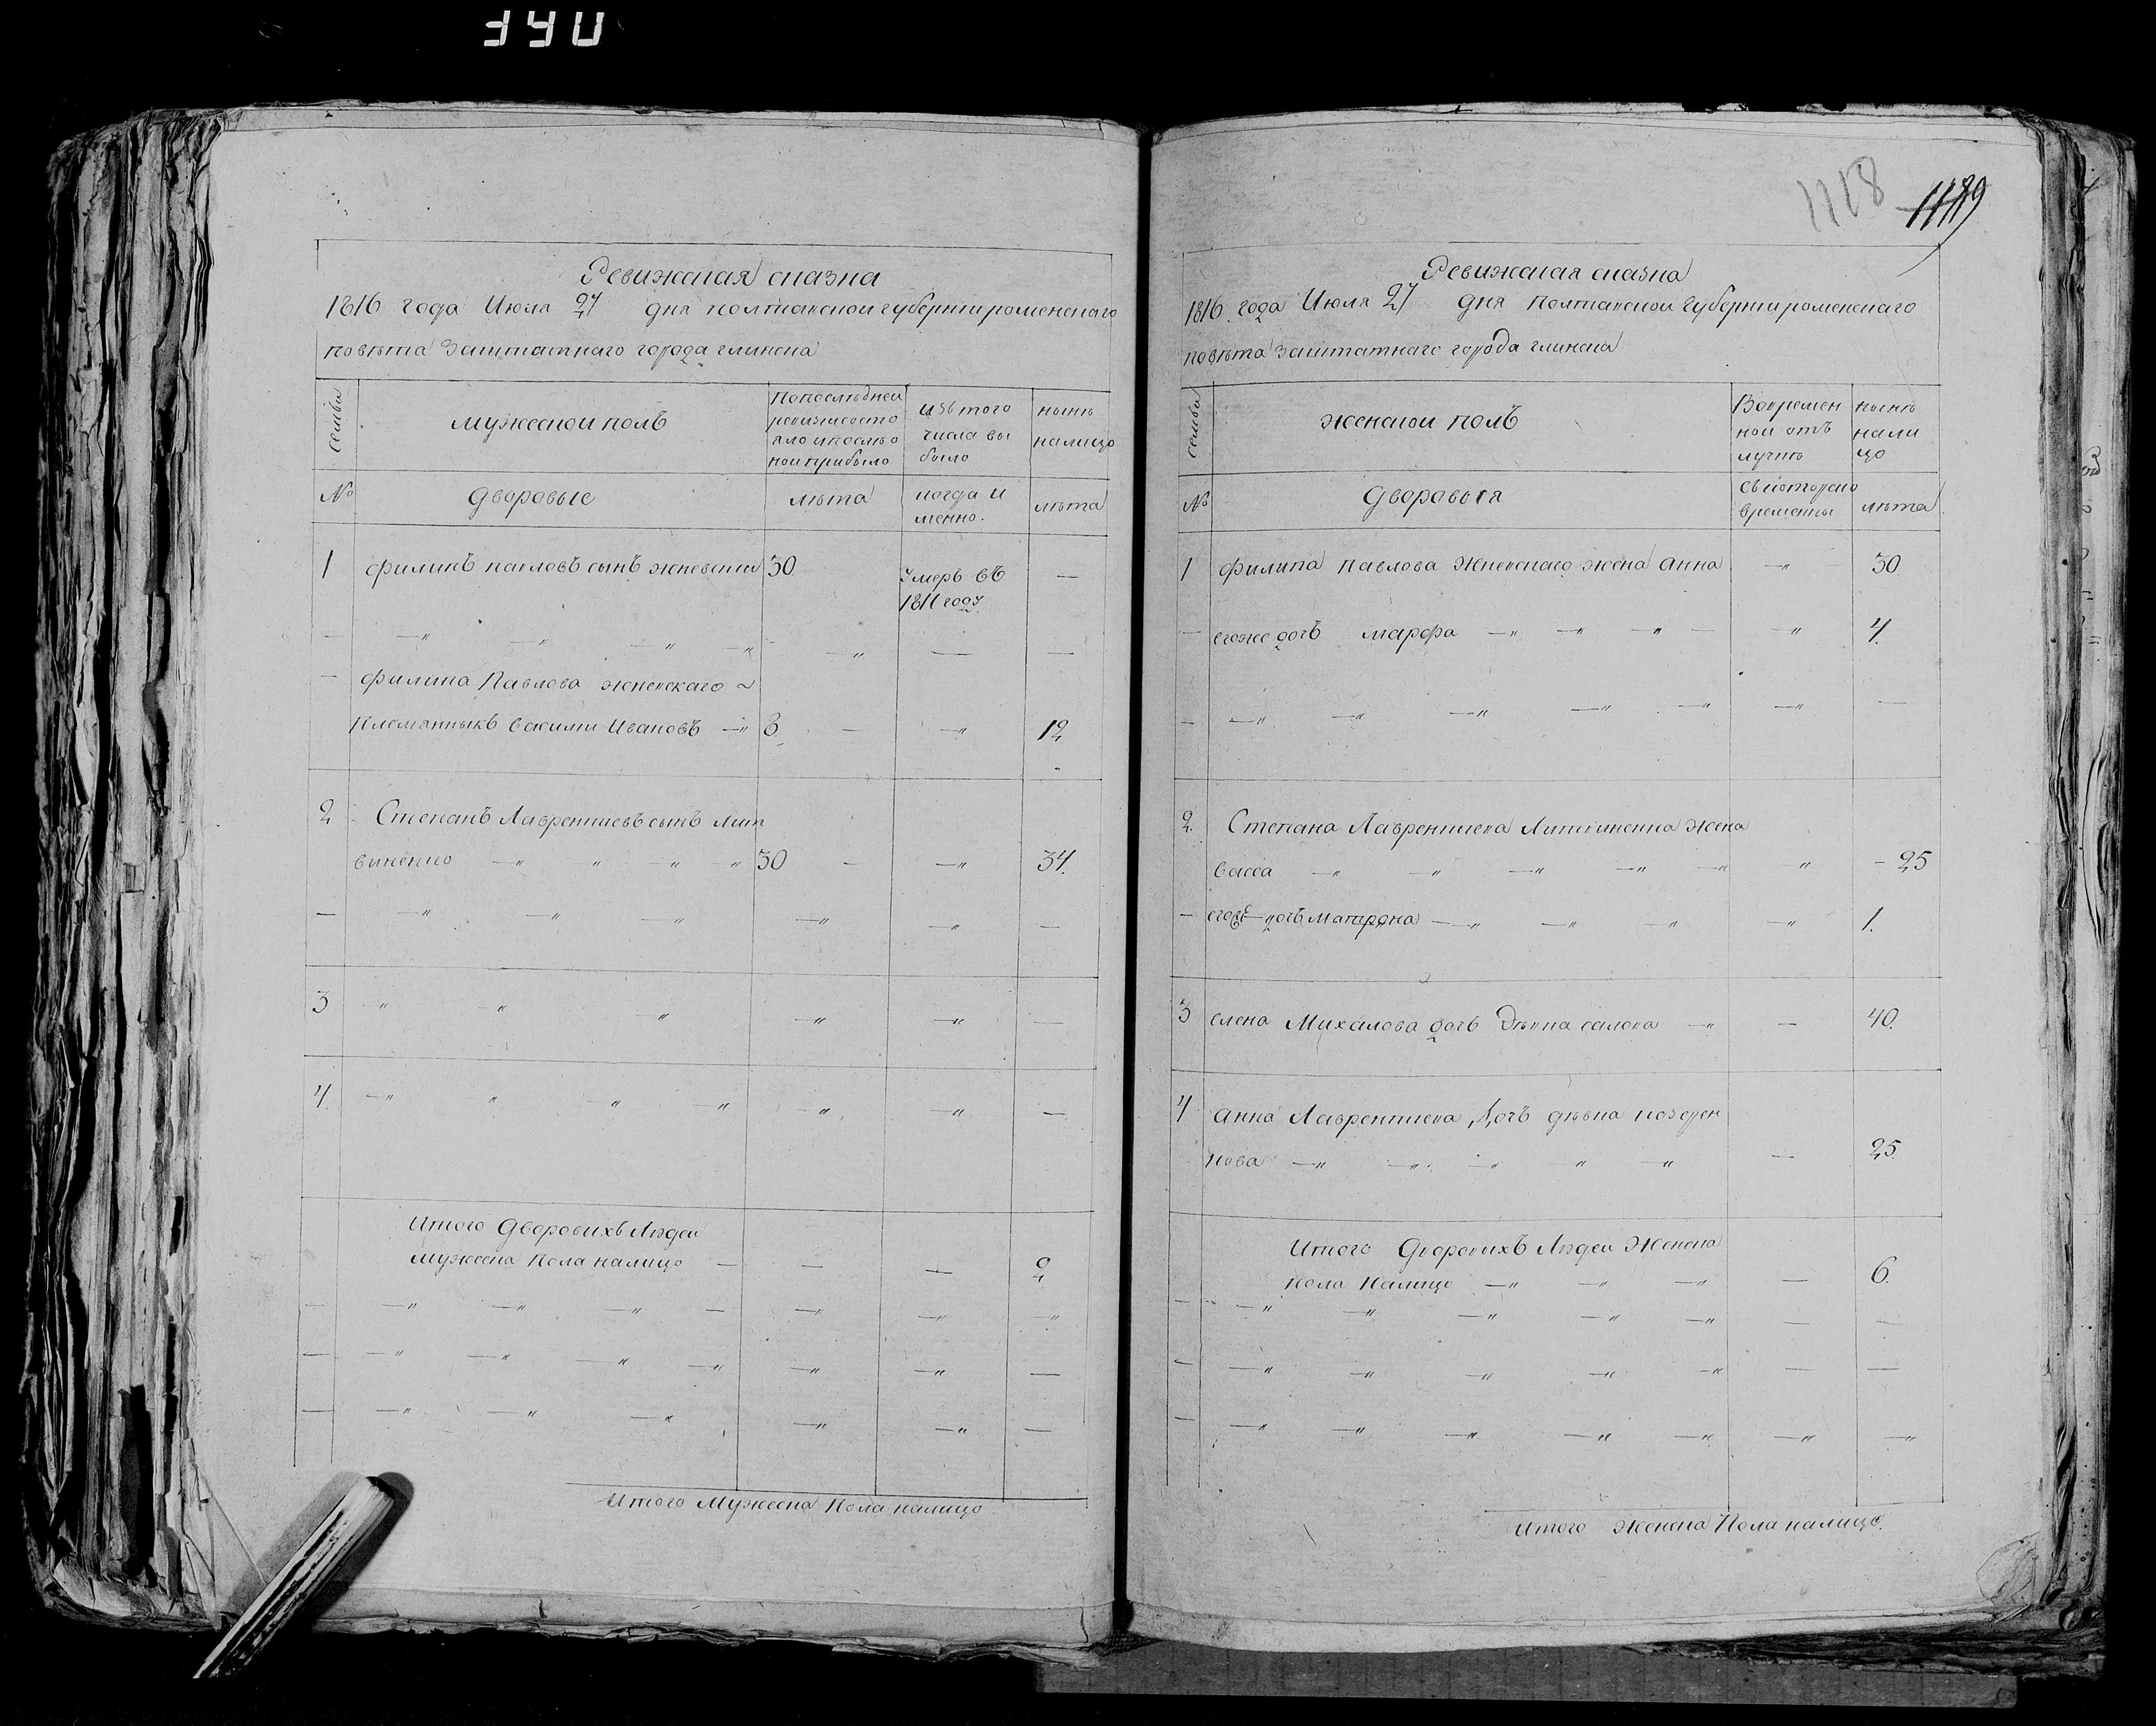 390
Ревижская сказка
1816 года Июля 27 дня полтавской губернии роменского
повѣта Заштатнаго города глинска
семьи
мужеской полъ
Попослѣдней
ревизисосто
яло ипослѣо
нои прибыло
изъ того
числа вы
было
нынѣ
налицо
№
дворовые
лѣта
когда и
менно.
лѣта
1 филипъ павловъ сынъ 30 Умеръ въ —
1811 году
— филипа Павлова
племанныкъ васили Ивановъ 8. — 12
2 Степанъ Лаврентиевъ сынъ Лит
виненко 30 — 34.
3
4.
Итого Дворовихъ Людеи
мужеска Пола налицо — — — 2
Итого Мужеска Пола налицо
1118 1119
Ревижская сказка
1816 года Июля 27 дня полтавской губернии роменского
повѣта заштатнаго города глинска
семьи
женской полъ
Вовремен
ной отъ
лучкѣ
нынѣ
нали
цо
№
дворовыя
съ котораго
времены
лѣта
1 филипа Павлова жена Анна 30.
— егоже дочь марфа 4.
2. Степана Лаврентиева Литвиненка жена
васса - 25
— дочь Матрона 1.
3 елена Михалова дочь Дѣвка 40.
4 анна Лаврентиева дочь дѣвка
кова — 25.
Итого Дворовихъ Людеи Женска
пола Налицо — 6.
Итого женска Пола налицо.